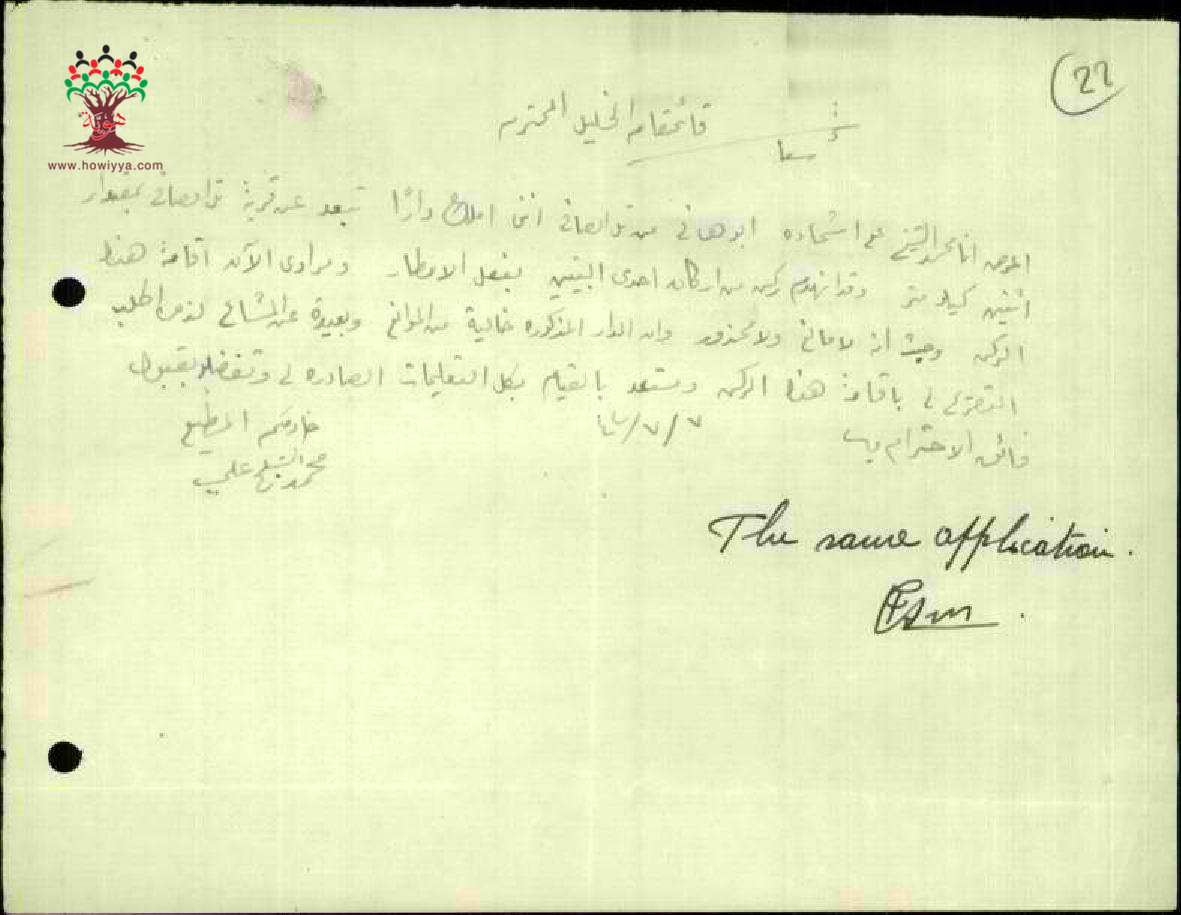 22
هوية
www.howiyya.com
قائمقام الخليل المحترم
اعرض انا محمد الشيخ علي اشحاده ابو هاني من تل الصافي انني املك دارًا تبعد عن قرية تل الصافي بمقدار
اثنين كيلو متر وقد انهدم ركن من اركان احدى البيتين بفعل الامطار ومرادي الآن اقامة هذا
الركن وحيث انه لا مانع ولا محذور وان الدار المذكوره خالية من الموانع وبعيدة عن المشاع لذا اطلب
التصريح لي باقامة هذا الركن ومستعد بالقيام بكل التعليمات الصادره لي وتفضلوا بقبول
فائق الاحترام ٧/٧/
خادمكم المطيع
محمد الشيخ علي
The same application.